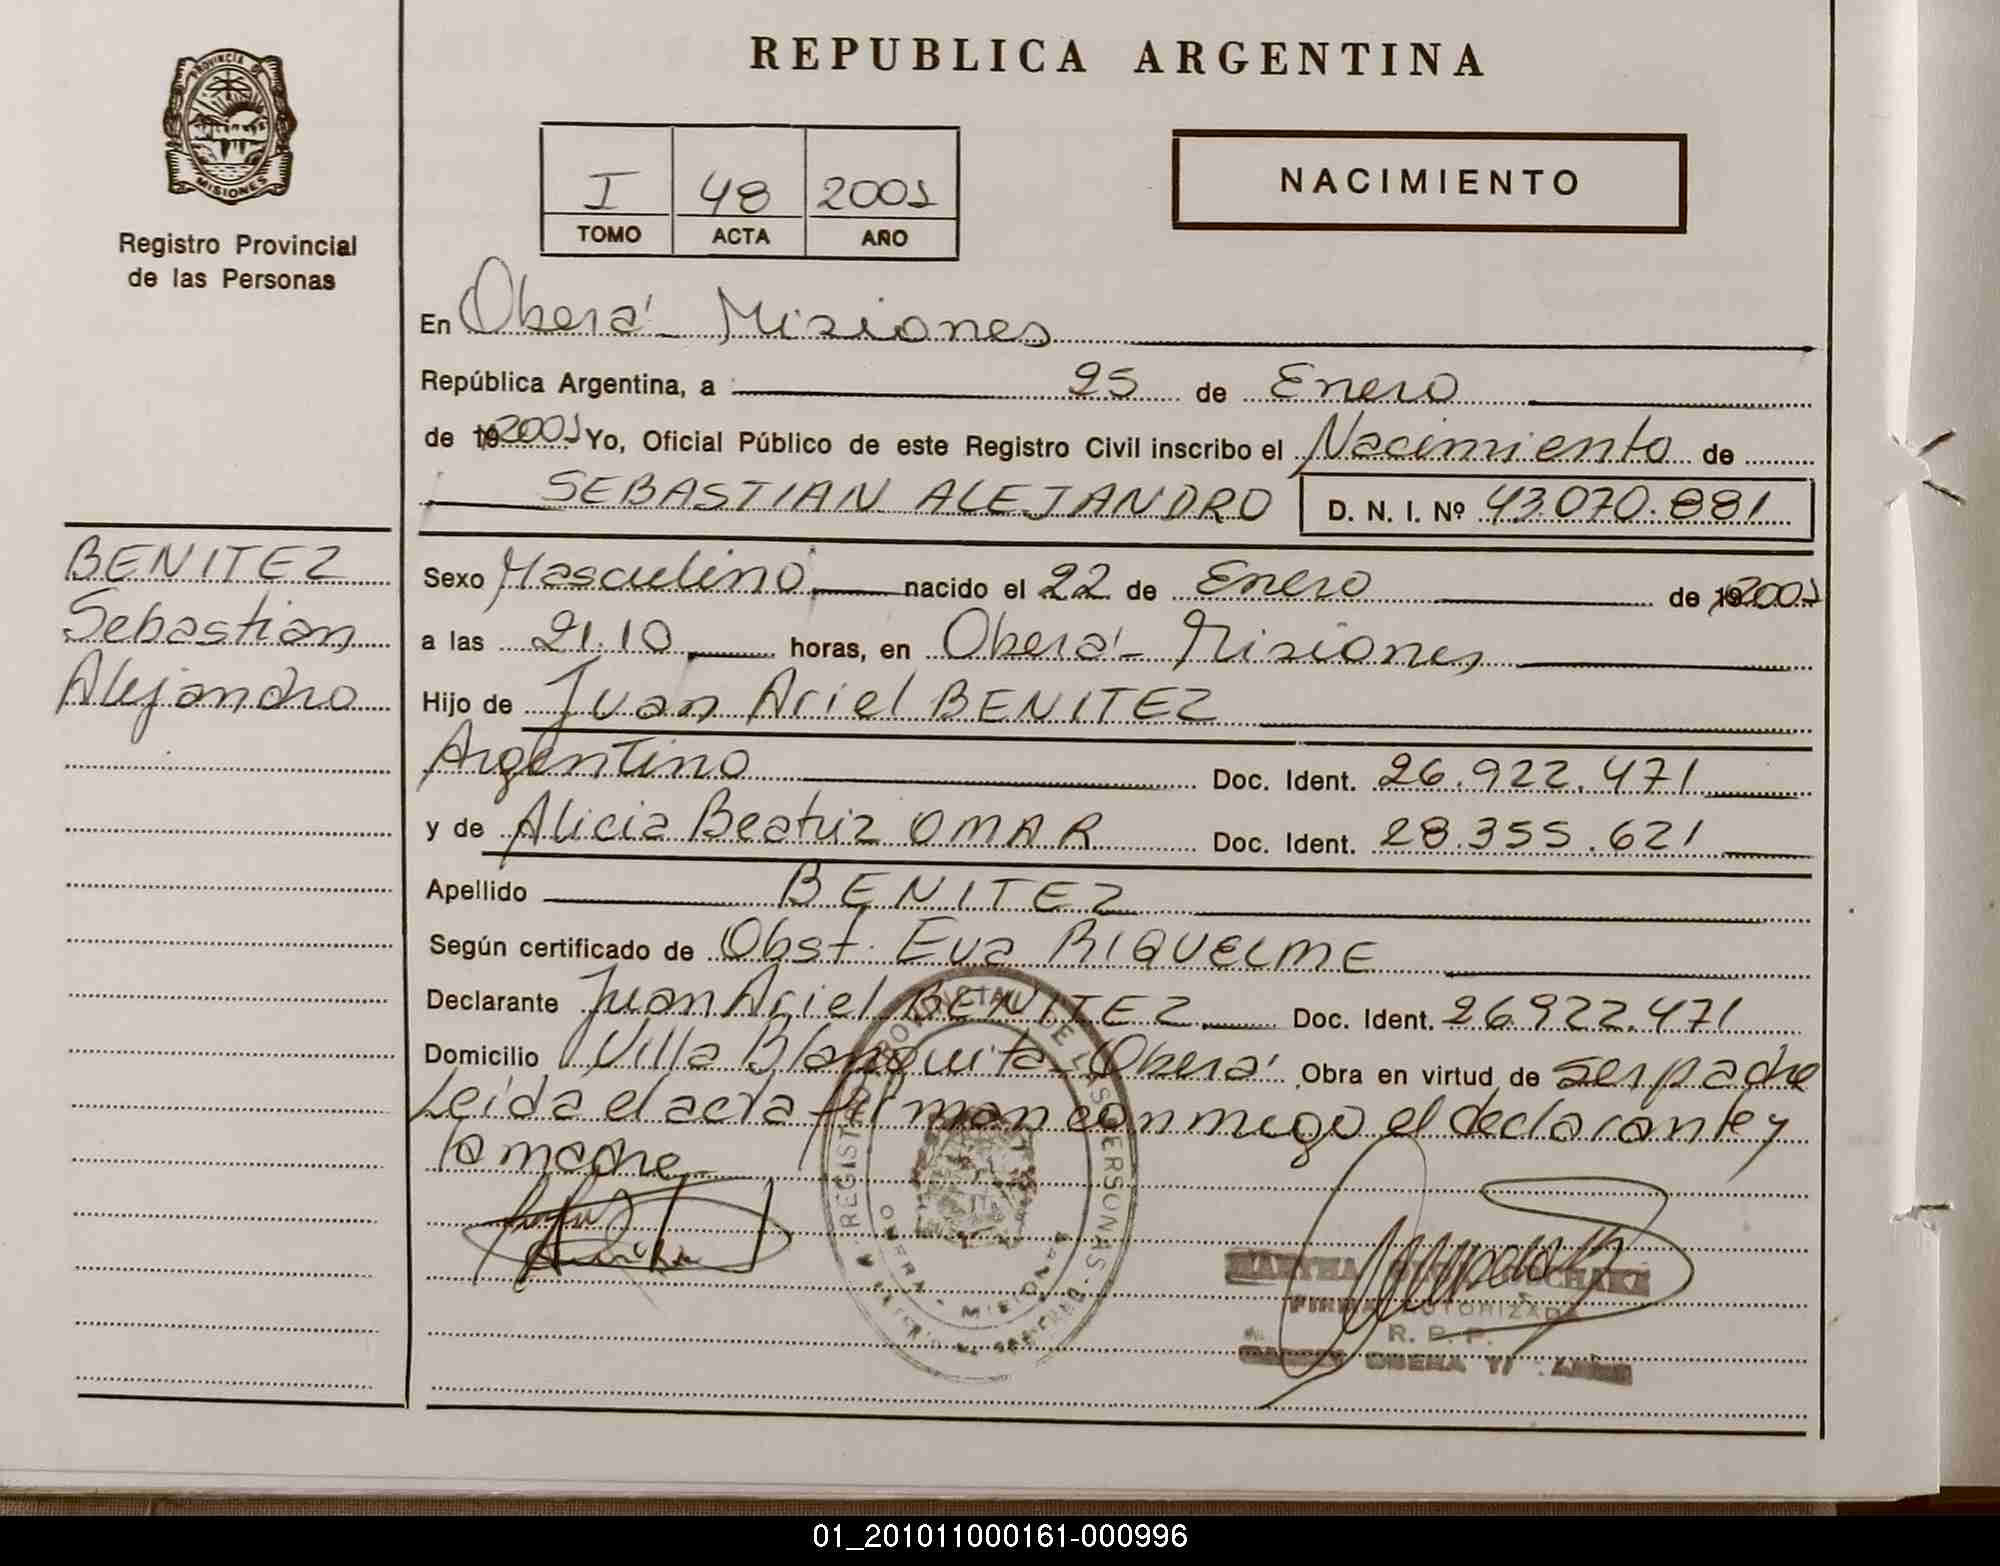 REPUBLICA ARGENTINA
PROVINCIA DE
MISIONES
Registro Provincial
de las Personas
I 48 2001
TOMO ACTA AÑO
NACIMIENTO
En Oberá - Misiones
República Argentina, a 25 de Enero
de 19 2001 Yo, Oficial Público de este Registro Civil inscribo el Nacimiento de
SEBASTIAN ALEJANDRO D. N. I. Nº 43.070.881
BENITEZ
Sebastian
Alejandro
Sexo Masculino nacido el 22 de Enero de 19 2001
a las 21.10 horas, en Oberá - Misiones
Hijo de Juan Ariel BENITEZ
Argentino Doc. Ident. 26.922.471
y de Alicia Beatriz OMAR Doc. Ident. 28.355.621
Apellido BENITEZ
Según certificado de Obst. Eva RIQUELME
Declarante Juan Ariel BENITEZ Doc. Ident. 26.922.471
Domicilio Villa Blanquita - Oberá Obra en virtud de ser padre
Leida el acta firman conmigo el declarante y
la madre
REGISTRO PROVINCIAL DE LAS PERSONAS
OBERA - MISIONES
MARTHA
FIRMA AUTORIZADA
R. P. P.
OBERA
01_201011000161-000996